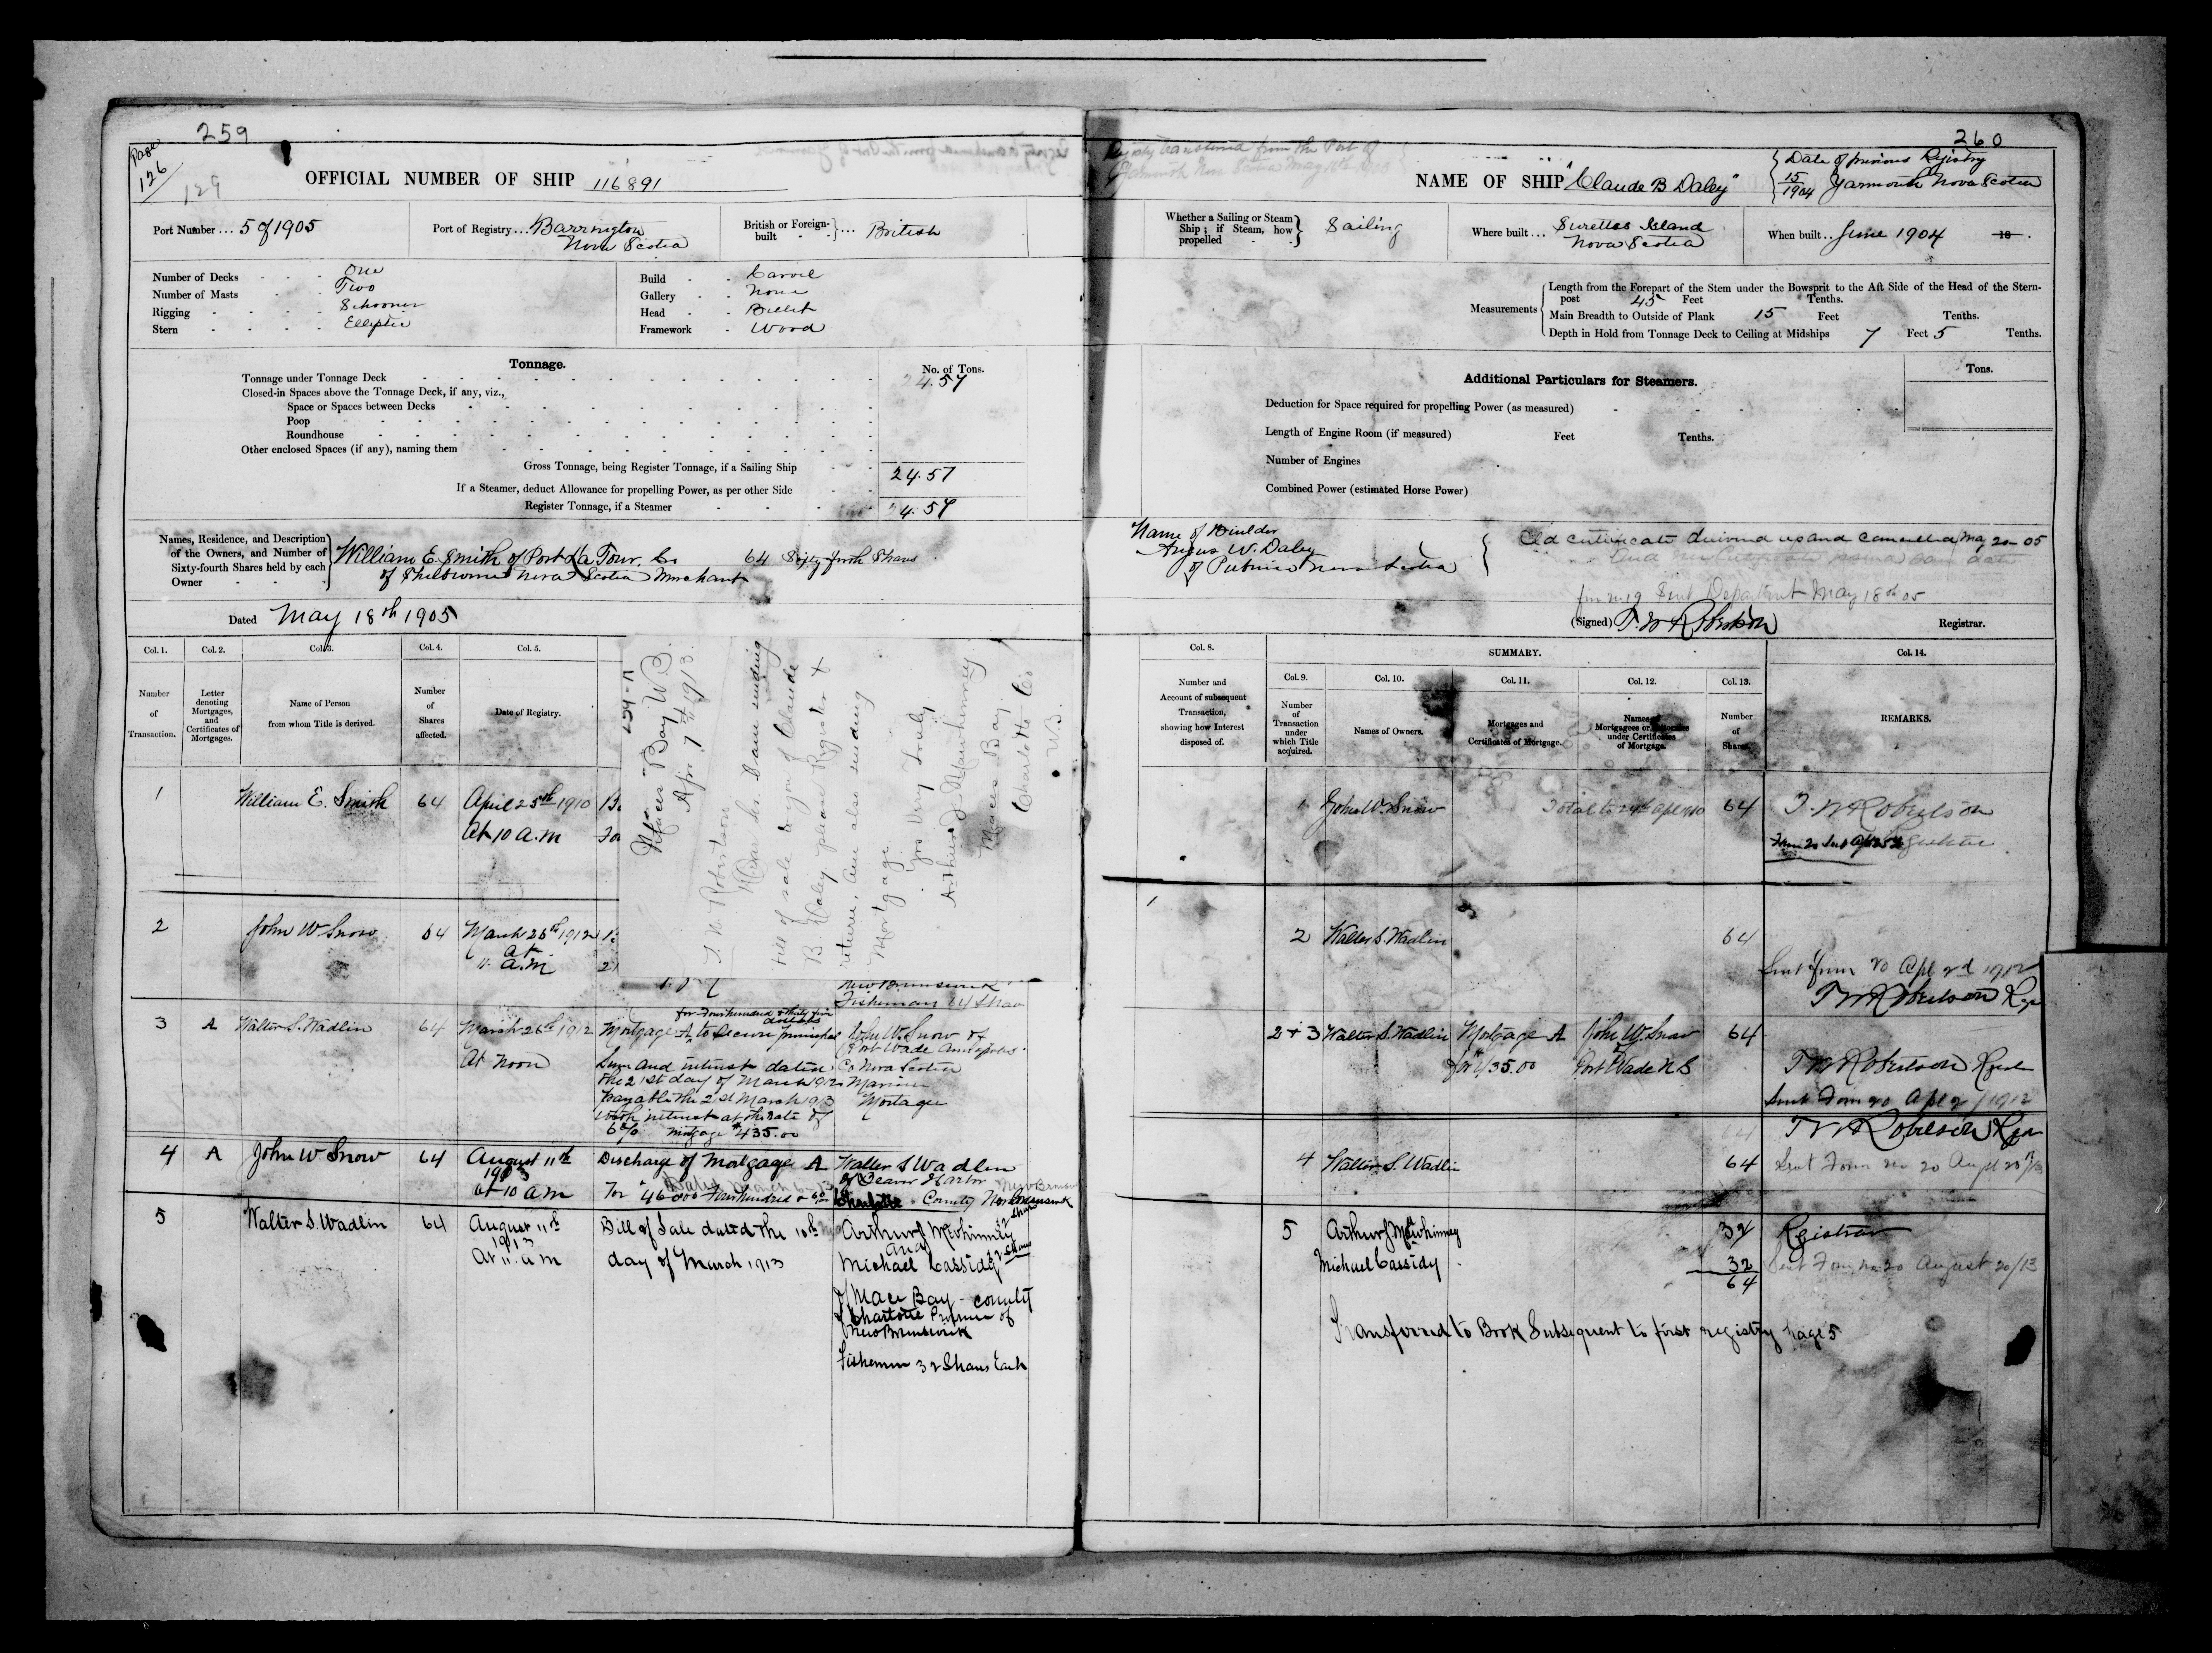 259
Page
126
129
OFFICIAL NUMBER OF SHIP 116891
Port Number ... 5 of 1905
Port of Registry ... Barrington
Nova Scotia
British or Foreign-built } ... British
Number of Decks One
Number of Masts Two
Rigging Schooner
Stern Elliptic
Build Carvel
Gallery None
Head Billet
Framework Wood
Tonnage.
No. of Tons.
Tonnage under Tonnage Deck 24.57
Closed-in Spaces above the Tonnage Deck, if any, viz.,
Space or Spaces between Decks
Poop
Roundhouse
Other enclosed Spaces (if any), naming them
Gross Tonnage, being Register Tonnage, if a Sailing Ship 24.57
If a Steamer, deduct Allowance for propelling Power, as per other Side
Register Tonnage, if a Steamer 24.57
Names, Residence, and Description
of the Owners, and Number of
Sixty-fourth Shares held by each
Owner
William E. Smith of Port La Tour, Co 64 Sixty fourth Shares
of Shelburne Nova Scotia Merchant
Dated May 18th 1905
Col. 1. Col. 2. Col. 3. Col. 4. Col. 5.
Number of Transaction.
Letter denoting Mortgages, and Certificates of Mortgages.
Name of Person from whom Title is derived.
Number of Shares affected.
Date of Registry.
1 William E. Smith 64 April 25th 1910
At 10 a.m
2 John W Snow 64 March 26th 1912
At
11 a.m
New Brunswick
Fisherman 64 Shares
3 A Walter S. Wadlin 64 March 26th 1912
At Noon
for Four hundred & thirty five
dollars
Mortgage A to Secure principal
Sum and interest dated
the 21st day of March 1912
payable the 21st March 1913
with interest at the rate of
6% mortgage $435.00
John W. Snow of
Port Wade Annapolis
Co Nova Scotia
Mariner
Mortagee
4 A John W Snow 64 August 11th
1913
at 10 a m
Discharge of Mortgage A
For $460.00 Four hundred & 60
Walter S Wadlin
of Beaver Harbor
Charlotte County New Brunswick
5 Walter S. Wadlin 64 August 11th
1913
At 11 a m
Bill of Sale dated the 10th
day of March 1913
Arthur J Mawhinney 32 Shares
and
Michael Cassidy 32 Shares
of Mace Bay county
of Charlotte Province of
New Brunswick
Fishermen 32 Shares Each
259-A
Maces Bay N.B.
Apr. 7th 1913.
T. W. Robertson
Dear Sir. I am sending
bill of sale to you of Claude
B. Daley please Register &
return, am also sending
Mortgage
Yrs Very Truly
Arthur J Mawhinney
Maces Bay
Charlotte Co
N.B.
260
Registry transferred from the Port of
Yarmouth Nova Scotia May 18th 1905
NAME OF SHIP "Claude B Daley"
Date of previous Registry
15/1904 Yarmouth Nova Scotia
Whether a Sailing or Steam
Ship; if Steam, how
propelled
Sailing
Where built ... Surettes Island
Nova Scotia
When built .. June 1904 18 .
Measurements
Length from the Forepart of the Stem under the Bowsprit to the Aft Side of the Head of the Stern-
post 45 Feet Tenths.
Main Breadth to Outside of Plank 15 Feet Tenths.
Depth in Hold from Tonnage Deck to Ceiling at Midships 7 Feet 5 Tenths.
Additional Particulars for Steamers.
Tons.
Deduction for Space required for propelling Power (as measured)
Length of Engine Room (if measured) Feet Tenths.
Number of Engines
Combined Power (estimated Horse Power)
Name of Builder
Angus W. Daley
of Pubnico Nova Scotia
Old certificate delivered up and cancelled May 20 05
And new Certificate same date
form 19 Sent Department May 18th 05
(Signed) T. W Robertson Registrar.
Col. 8. SUMMARY. Col. 14.
Col. 9. Col. 10. Col. 11. Col. 12. Col. 13.
Number and Account of subsequent Transaction, showing how Interest disposed of.
Number of Transaction under which Title acquired.
Names of Owners.
Mortgages and Certificates of Mortgage.
Names of Mortgagees or Attornies under Certificates of Mortgage.
Number of Shares.
REMARKS.
1 John W. Snow 64 T. W Robertson
Registrar
2 Walter S. Wadlin 64
Sent form 20 Apl 2d 1912
T W Robertson Regr
2 + 3 Walter S. Wadlin Mortgage A John W. Snow 64
for $435.00 Port Wade N S
T W Robertson Regr
Sent Form 20 Apl 2/1912
T W Robertson Regr
4 Walter S. Wadlin 64
5 Arthur J Mawhinney 32 Registrar
Michael Cassidy 32 Sent Form no 20 August 20/13
64
Transferred to Book Subsequent to first registry page 5